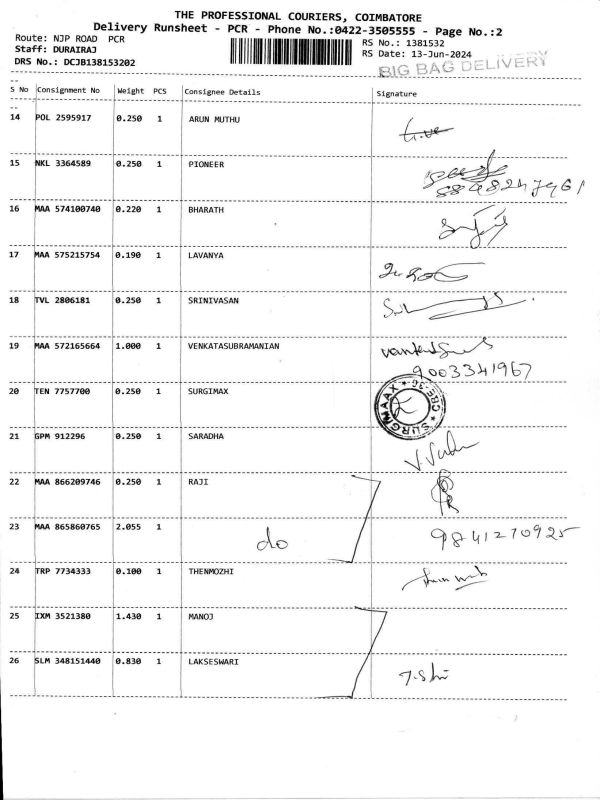 THE PROFESSIONAL COURIERS, COIMBATORE
Delivery Runsheet - PCR - Phone No.:0422-3505555 - Page No.:2
Route: NJP ROAD PCR
RS No.: 1381532
Staff: DURAIRAJ
RS Date: 13-Jun-2024
DRS No.: DCJB138153202
BIG BAG DELIVERY
S No Consignment No Weight PCS Consignee Details Signature
14 POL 2595917 0.250 1 ARUN MUTHU
15 NKL 3364589 0.250 1 PIONEER
16 MAA 574100740 0.220 1 BHARATH
17 MAA 575215754 0.190 1 LAVANYA
18 TVL 2806181 0.250 1 SRINIVASAN
19 MAA 572165664 1.000 1 VENKATASUBRAMANIAN
9003341967
20 TEN 7757700 0.250 1 SURGIMAX
SURGIMAAX
CBE-30
21 GPM 912296 0.250 1 SARADHA
22 MAA 866209746 0.250 1 RAJI
23 MAA 865860765 2.055 1 do 9841270925
24 TRP 7734333 0.100 1 THENMOZHI
25 IXM 3521380 1.430 1 MANOJ
26 SLM 348151440 0.830 1 LAKSESWARI